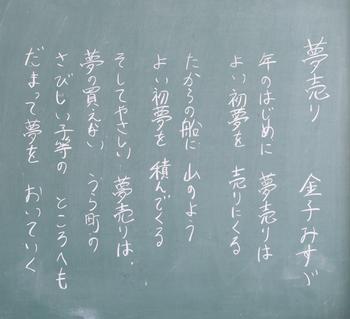 夢売り 金子みすゞ
年のはじめに 夢売りは
よい初夢を 売りにくる
たからの船に 山のよう
よい初夢を 積んでくる
そしてやさしい 夢売りは、
夢の買えない うら町の
さびしい子等の ところへも
だまって夢を おいていく